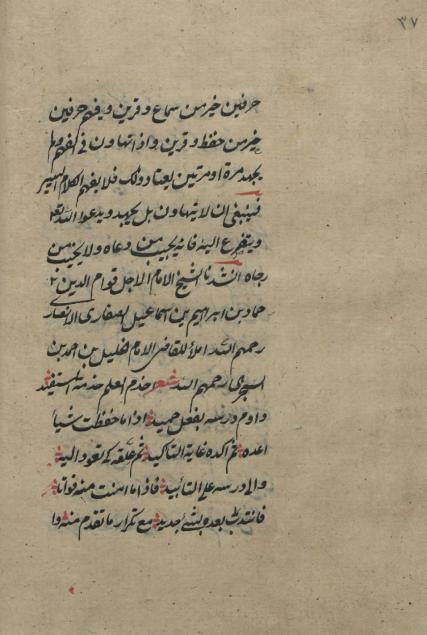 ٣٧
حرفين خير من سماع وقرين وفهم حرفين
خير من حفظ وقرين واذا تهاون فى الفهم ولم
يجهد مرة او مرتين يعتاد ذلك فلا يفهم الكلام اليسير
فينبغى ان لا يتهاون بل يجهد ويدعوا الله تع
ويتضرع اليه فانه يجيب من دعاه ولا يخيب من
رجاه انشدنا الشيخ الامام الاجل قوام الدين
حماد بن ابراهيم بن اسماعيل الصفارى الانصار
رحمهم الله املأ للقاضى الامام خليل بن احمد بن
السجزى رحمهم الله شعر اخدم العلم خدمة المستفيد
وادم درسه بفعل حميد اذا ما حفظت شيأ
اعده ثم اكده غاية التاكيد ثم علقه كه تعود اليه
والى درسه على التأبيد فاذا ما امنت منه فواتا
فانتدب بعده بشئ جديد مع تكرار ما تقدم منه وا